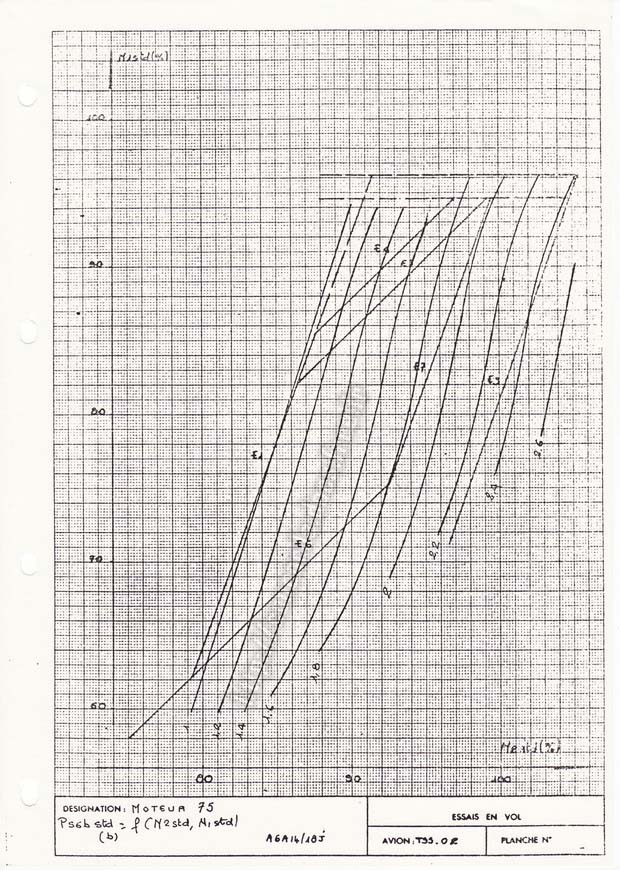 N1std(%)
100
90
80
70
60
E4
E3
E7
E9
E1
E5
2.6
2.4
2.2
2
1,8
1.6
1.4
1.2
1
N2std(%)
80
90
100
DESIGNATION: MOTEUR 75
Ps6b std = f (N2std, N1std)
(b)
A6A14/18J
ESSAIS EN VOL
AVION: TSS.02
PLANCHE N°